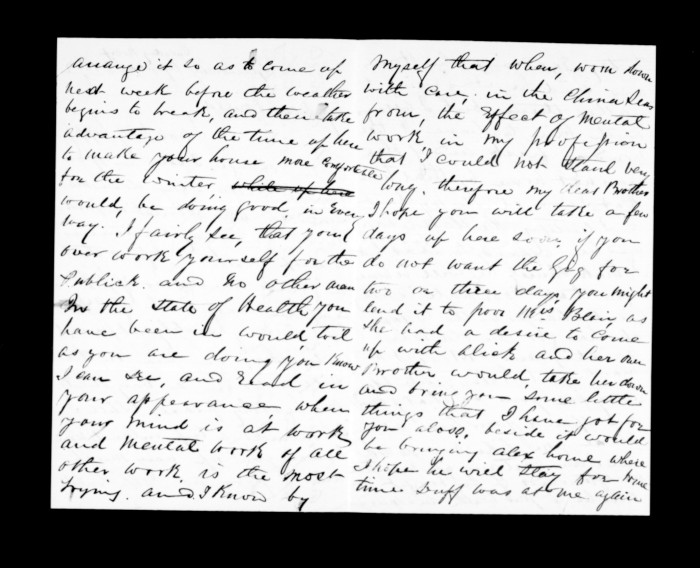 arrange it so as to come up
next week before the weather
begins to break, and then take
advantage of the time up here
to make your house more comfortable
for the winter while up here
would, be doing good, in Every
way. I fairly see, that you
over work yourself for the
Publick. and no other man
In the state of Health you
have been in would toil
as you are doing you know
I can see, and read in
your appearance when
your mind is at work
and Mental work of all
other work, is the most
trying. and I know by
myself that when, worn down
with care, in the China Seas
from, the Effect of Mental
work, in my profession
that I could not stand very
long. therefore my dear Brother
I hope you will take a few
days up here soon, if you
do not want the Gig for
two or three days you might
lend it to poor Mrs Blair, as
she had a desire to come
up with Alick and her own
Brother would, take her down
and bring you some little
things that I have got for
you also, beside it would
be bringing alex home where
I hope he will stay for some
time. Duff was at me again